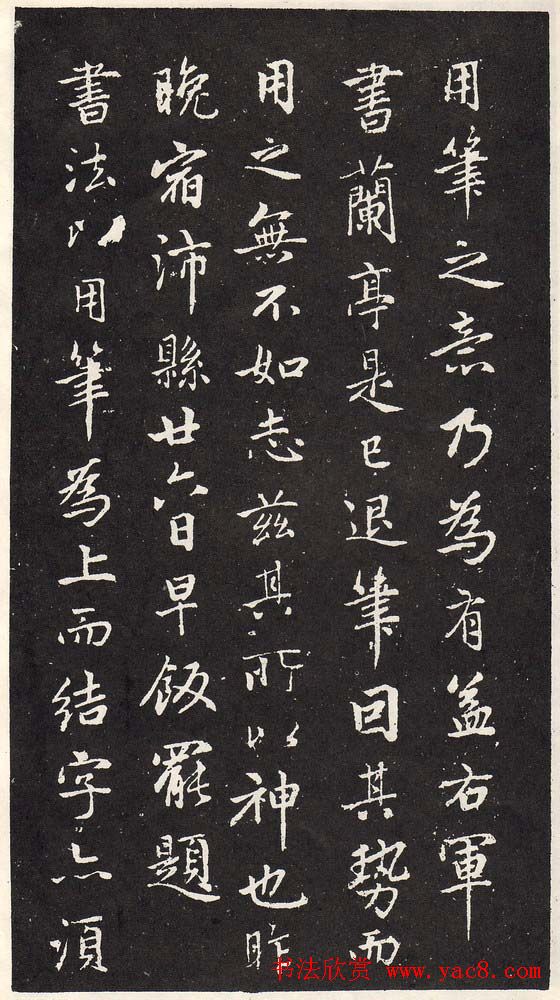 用筆之意乃為有益右軍
書蘭亭是已退筆回其勢而
用之無不如志兹其所以神也昨
晚宿沛縣廿六日早飯罷題
書法以用筆為上而結字亦須
书法欣赏 www.yac8.com